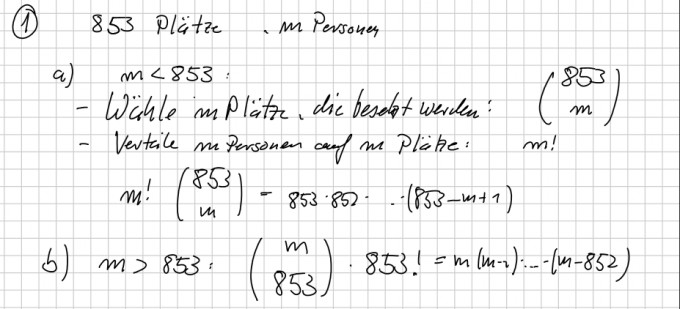 ① 853 Plätze, m Personen
a) m < 853:
- Wähle m Plätze, die besetzt werden: (853 über m)
- Verteile m Personen auf m Plätze: m!
m! (853 über m) = 853·852· … ·(853-m+1)
b) m > 853: (m über 853) · 853! = m(m-1)·…·(m-852)